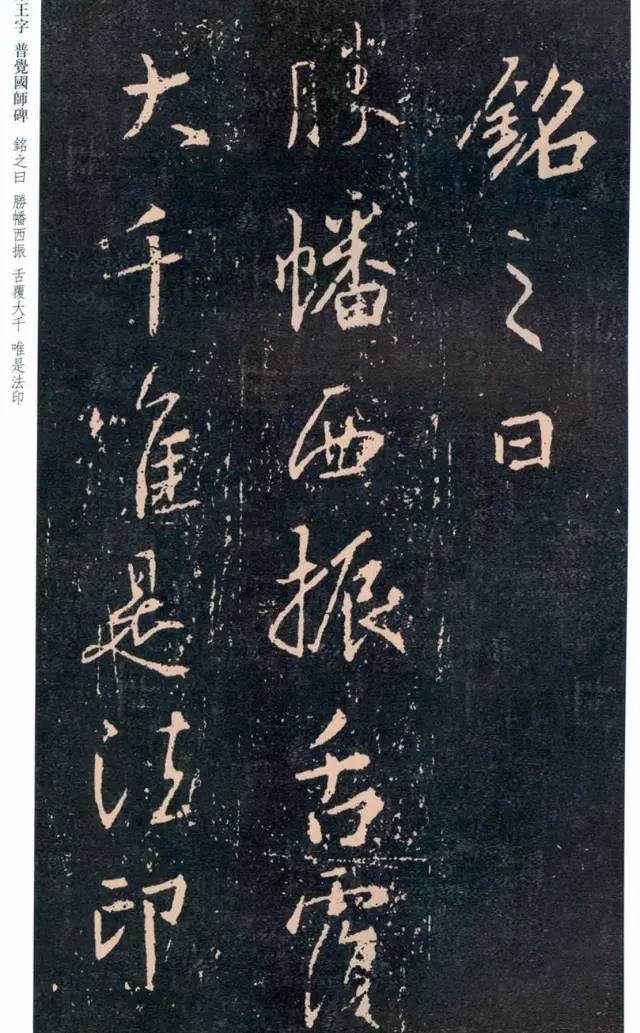 銘之曰
勝幡西振舌覆
大千唯是法印
王字 普覺國師碑 銘之曰 勝幡西振 舌覆大千 唯是法印